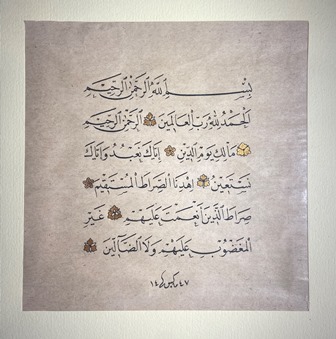 بِسْمِ ٱللَّهِ ٱلرَّحْمَٰنِ ٱلرَّحِيمِ
ٱلْحَمْدُ لِلَّهِ رَبِّ ٱلْعَالَمِينَ ٱلرَّحْمَٰنِ ٱلرَّحِيمِ
مَالِكِ يَوْمِ ٱلدِّينِ إِيَّاكَ نَعْبُدُ وَإِيَّاكَ
نَسْتَعِينُ ٱهْدِنَا ٱلصِّرَاطَ ٱلْمُسْتَقِيمَ
صِرَاطَ ٱلَّذِينَ أَنْعَمْتَ عَلَيْهِمْ غَيْرِ
ٱلْمَغْضُوبِ عَلَيْهِمْ وَلَا ٱلضَّالِّينَ